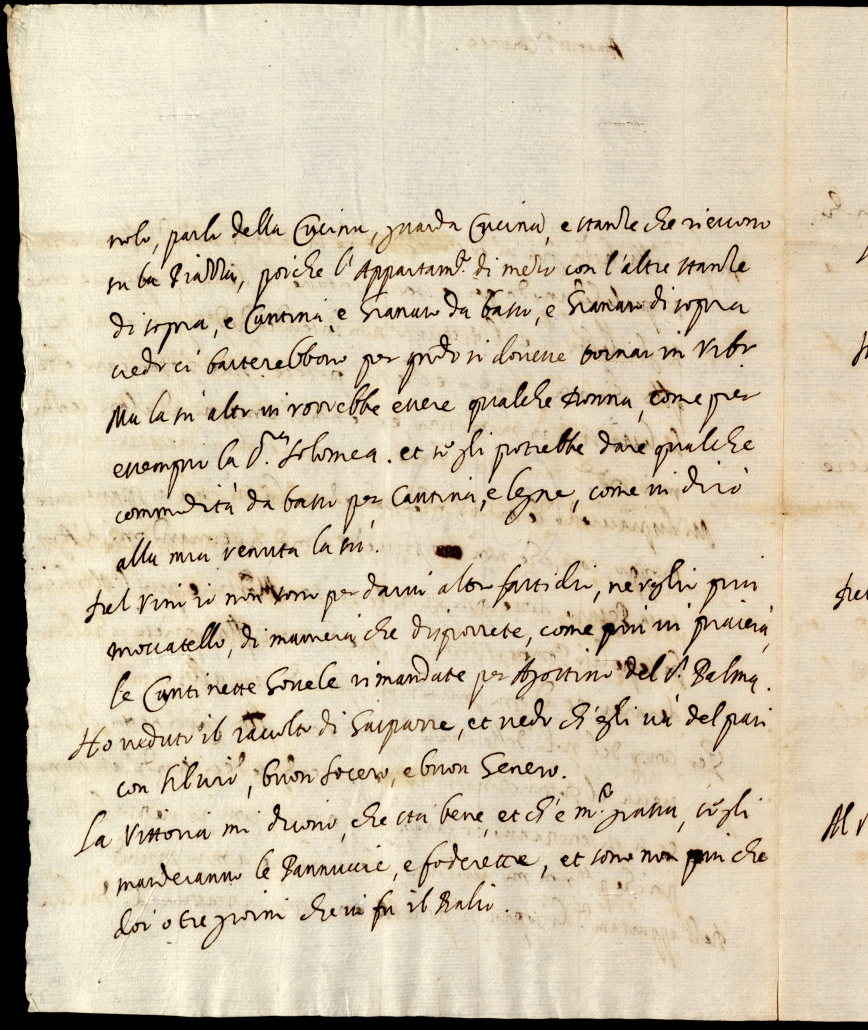 solo, parlo della Cucina, guarda Cucina, e stanze che riescono
su la Piazza, poiche l'Appartam.to di mezo con l'altre stanze
di sopra, e Cantina, e Granaro da basso, e Granaro di sopra
credo ci basterebbono per q.ndo si dovesse tornar in
Ma la sù altr vi vorrebbe essere qualche Donna, come per
essempio la S.ra Solomea. et se gli potrebbe dare qualche
commodità da basso per Cantina, e legne, come vi dirò
alla mia venuta la sù.
Del Vino io non sono per darvi altro fastidio, ne voglio più
moscatello, di maniera che disporrete, come più vi piacerà,
le Cantinette sonole rimandate per Agostino del S.r Palma.
Ho veduto il racolto di Gasparre, et vedo ch'egli và del pari
con Silvio, buon Socero, e buon Genero.
La Vittoria mi dicono, che sta bene, et ch'è m.to grassa, se gli
manderanno le Pannuccie, e foderette, et sono non più che
doi o tre giorni che vi fu il Balio.